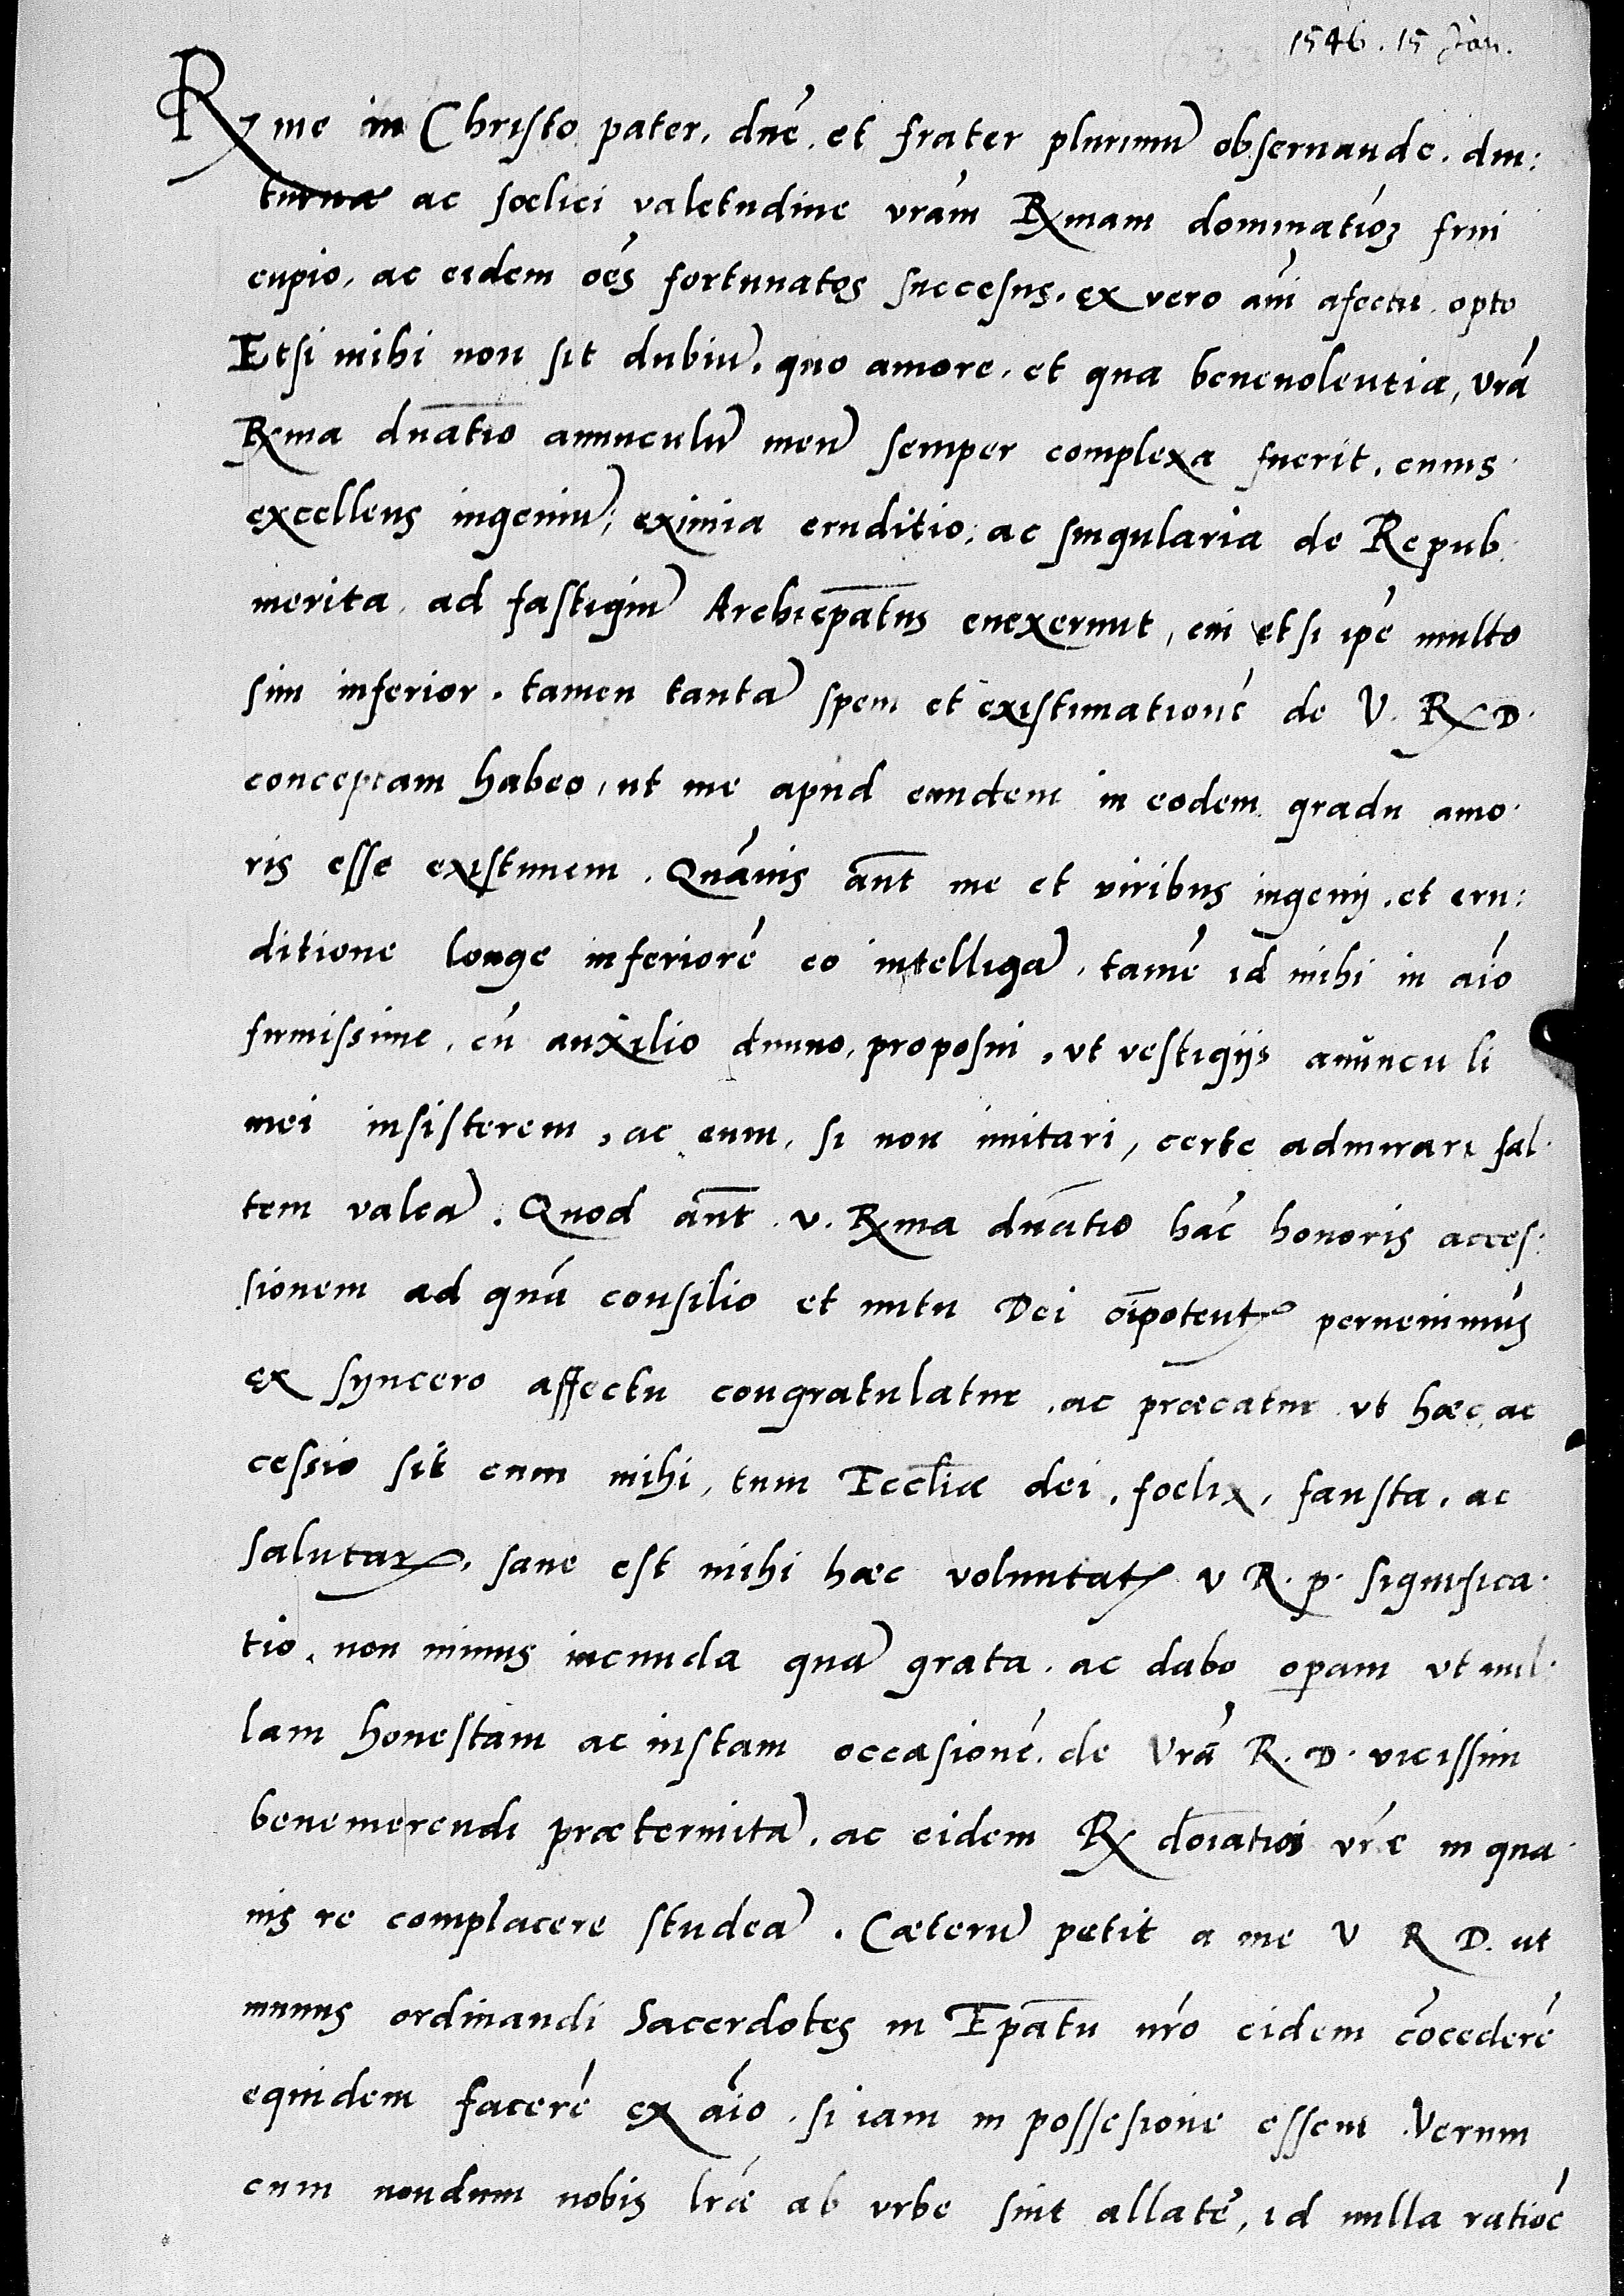 1546. 15 Jan.
Rme in Christo pater, dnē. et frater plurimū obseruande. diu:
turna ac foelici valetudine vrām Rmam dominatioȝ frui
cupio, ac eidem oēs fortunatos succesus. ex vero aīi afectu opto
Etsi mihi non sit dubiū, quo amore, et qua beneuolentia, vrā
Rma dnātio auunculū meū semper complexa fuerit, cuius
excellens ingeniū, eximia eruditio, ac singularia de Repub.
merita, ad fastigiū Archiepātus euexerunt, cui etsi ipē multo
sim inferior. tamen tantā spem et existimationē de V. R D.
conceptam habeo, ut me apud eandem in eodem gradu amo
ris esse existimem. Quāuis aūt me et viribus ingenij, et eru:
ditione longe inferiorē eo intelligā, tamē id mihi in aīo
firmissime, cū auxilio diuino, proposui, vt vestigijs auūnculi
mei insisterem, ac eum, si non imitari, certe admirari sal
tem valeā. Quod aūt. v. Rma dnātio hāc honoris acces
sionem ad quā consilio et nutu Dei oīpotentis peruenimus
ex syncero affectu congratulatur, ac præcatur vt hæc ac
cessio sit cum mihi, tum Eccliæ dei, foelix, fausta, ac
salutaris, sane est mihi hæc voluntatis v R. p. significa
tio, non minus iucunda quā grata. ac dabo opam vt nul
lam honestam ac iustam occasionē. de Vrā R. D. vicissim
benemerendi prætermitā, ac eidem R doīatioi vrē in qua
uis re complacere studeā. Cæterū petit a me V R D. ut
munus ordinandi Sacerdotes in Epātu nrō eidem cōcederē
equidem facerē ex aīo. si iam in possesione essem Verum
cum nondum nobis lræ ab vrbe sint allatē, id nulla ratioē